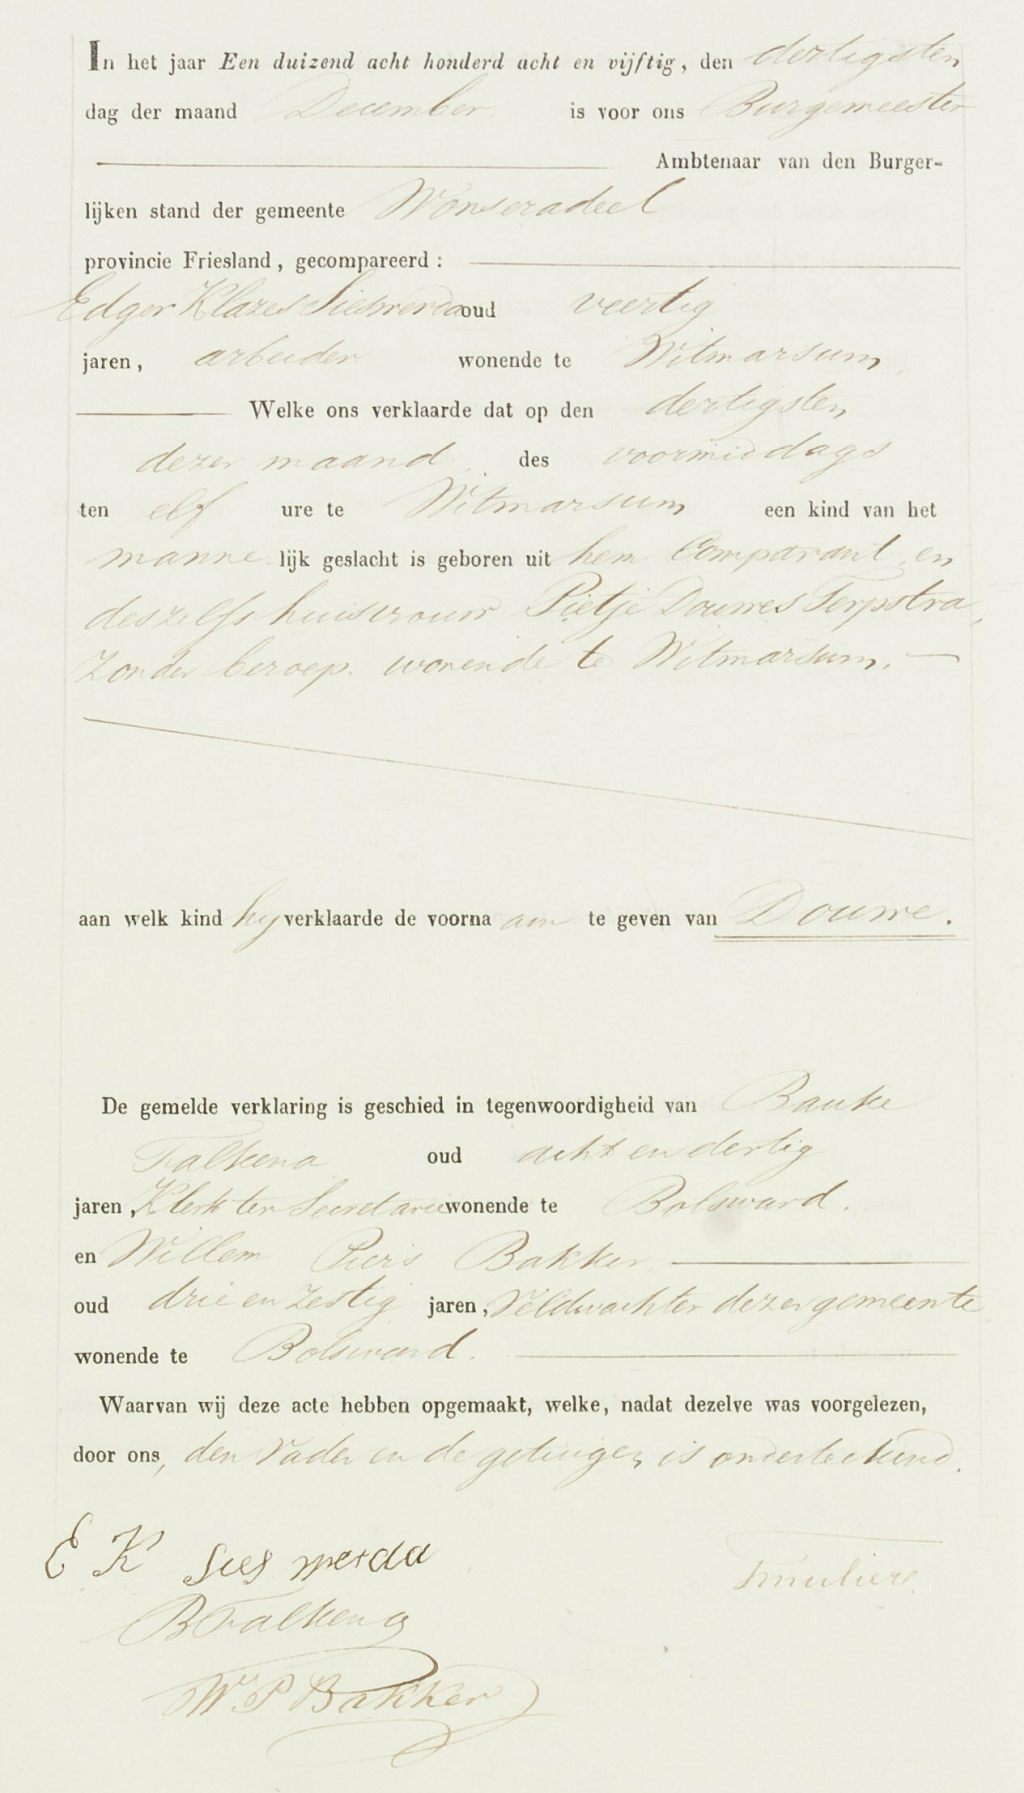 In het jaar Een duizend acht honderd acht en vijftig, den dertigsten
dag der maand December is voor ons Burgemeester
Ambtenaar van den Burger-
lijken stand der gemeente Wonseradeel
provincie Friesland, gecompareerd :
Edger Klazes Sieswerda oud veertig
jaren, arbeider wonende te Witmarsum
Welke ons verklaarde dat op den dertigsten
dezer maand des voormiddags
ten elf ure te Witmarsum een kind van het
manne lijk geslacht is geboren uit hem Comparant en
deszelfs huisvrouw Pietje Douwes Terpstra,
Zonder beroep. wonende te Witmarsum.
aan welk kind hy verklaarde de voorna am te geven van Douwe.
De gemelde verklaring is geschied in tegenwoordigheid van Bauke
Falkena oud acht en dertig
jaren, Klerk ter Secretarie wonende te Bolsward.
en Willem Piers Bakker
oud drie en Zestig jaren, Veldwachter dezer gemeente
wonende te Bolsward.
Waarvan wij deze acte hebben opgemaakt, welke, nadat dezelve was voorgelezen,
door ons, den Vader en de getuigen is onderteekend.
E K Sieswerda
B Falkena
W. P Bakker